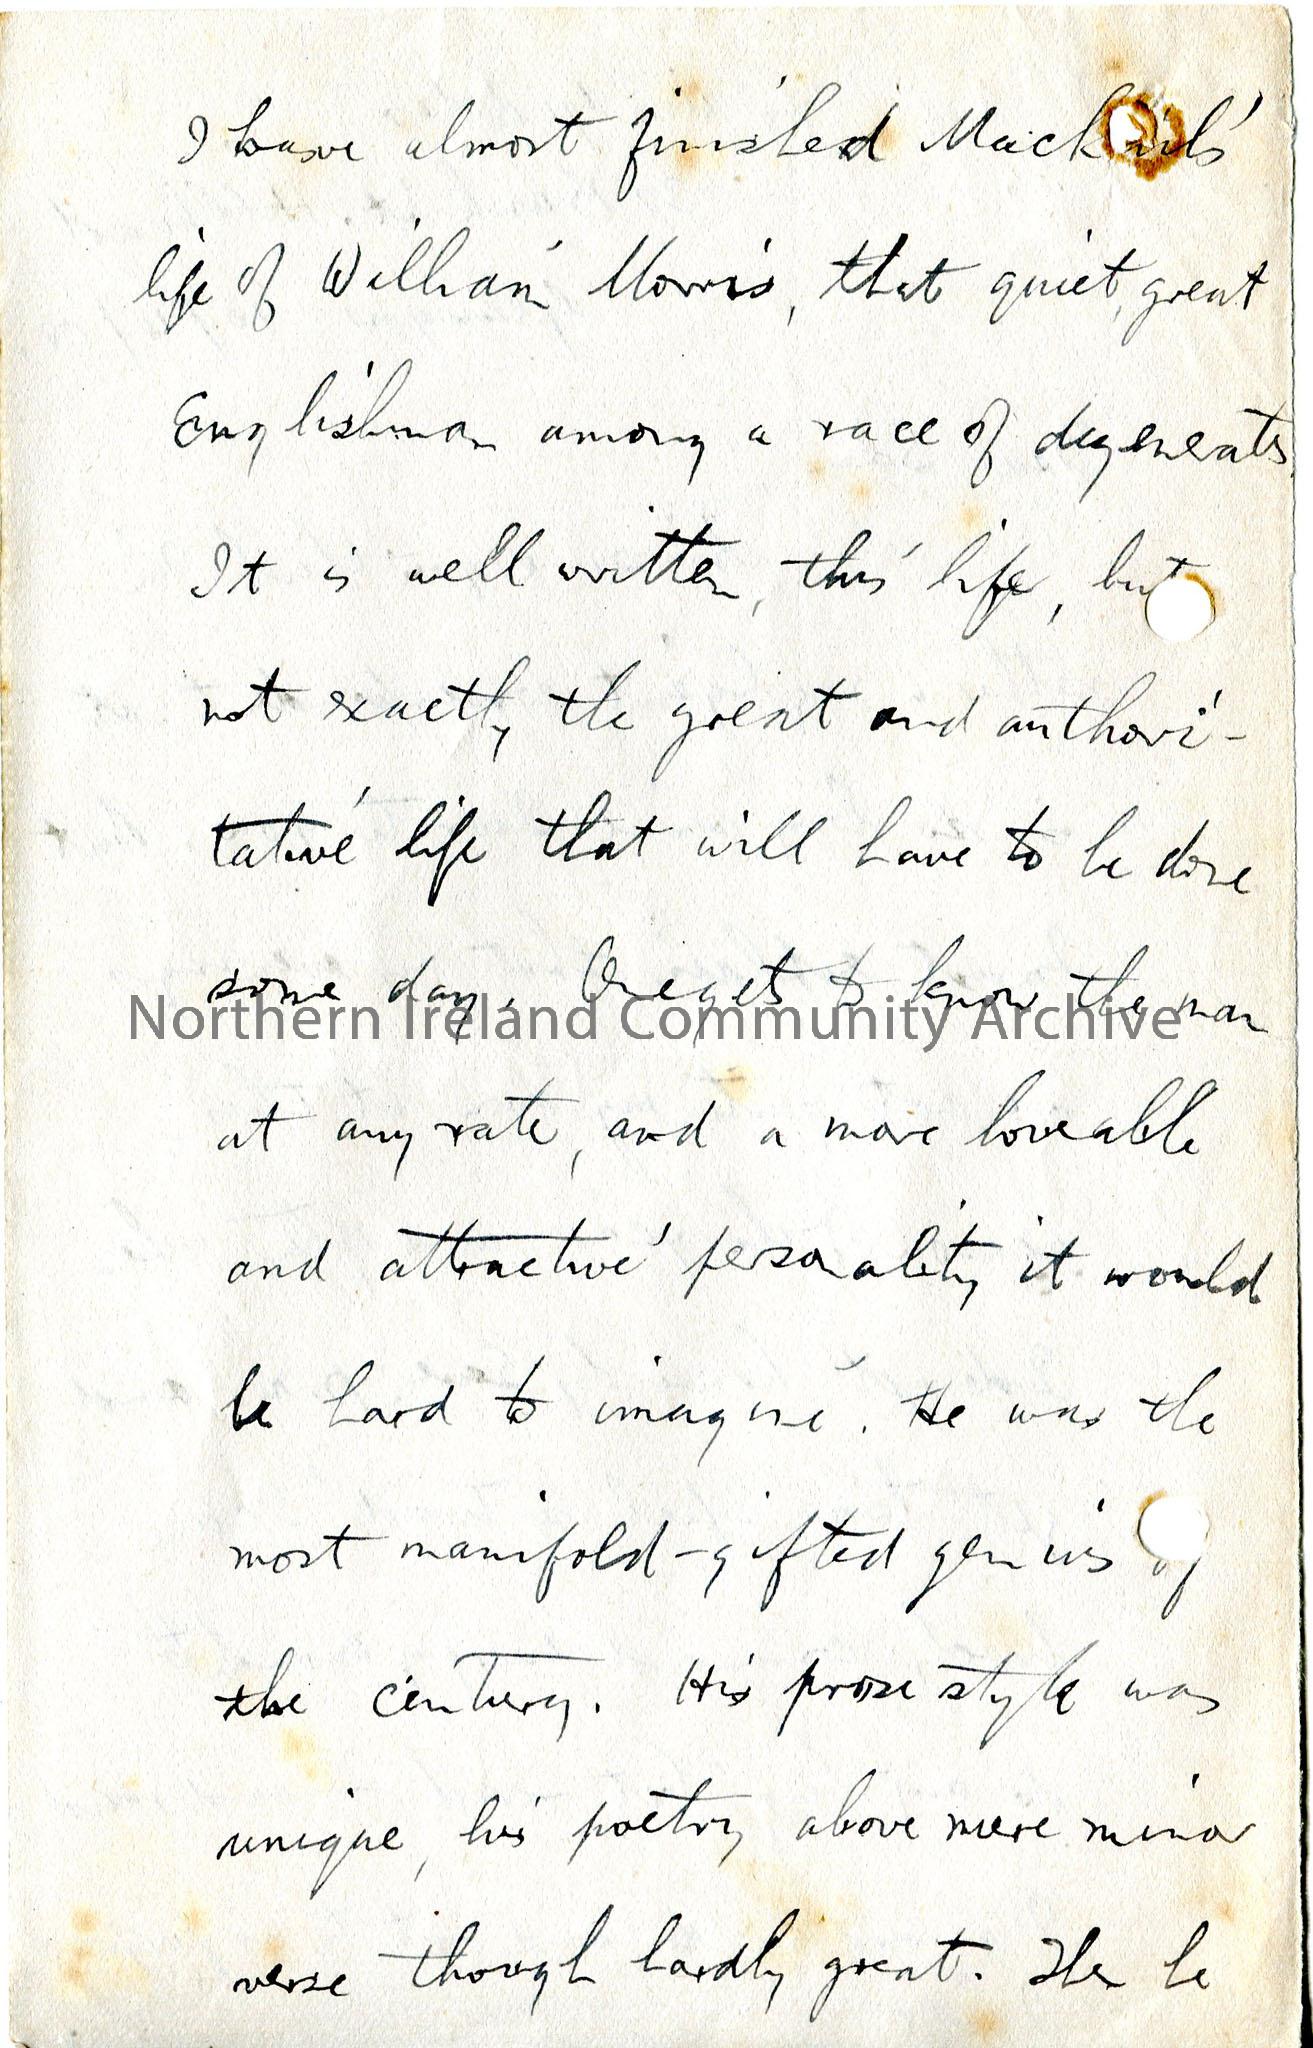 I have almost finished Mackail's
life of William Morris, that quiet, great
Englishman among a race of degenerates.
It is well written, this life, but
not exactly the great and authori-
tative life that will have to be done
some day. One gets to know the man
Northern Ireland Community Archive
at any rate, and a more loveable
and attractive personality it would
be hard to imagine. He was the
most manifold-gifted genius of
the century. His prose style was
unique, his poetry above mere minor
verse though hardly great. Then he